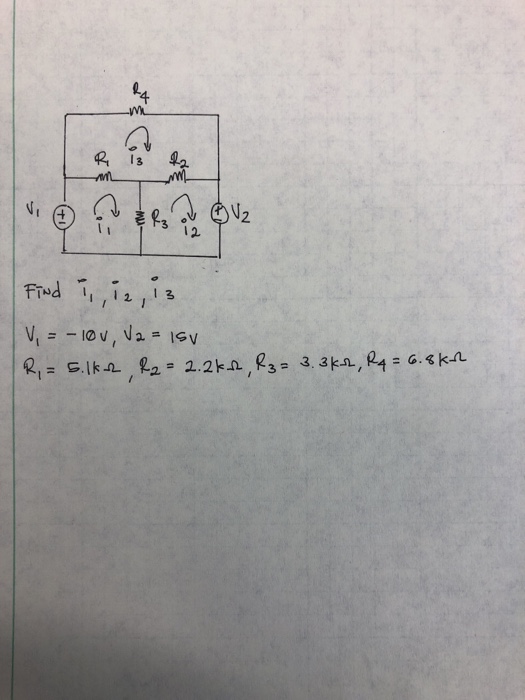 R4
i3
R1 R2
V1 ± i1 R3 i2 ± V2
Find i1, i2, i3
V1 = -10V, V2 = 15V
R1 = 5.1kΩ, R2 = 2.2kΩ, R3 = 3.3kΩ, R4 = 6.8kΩ